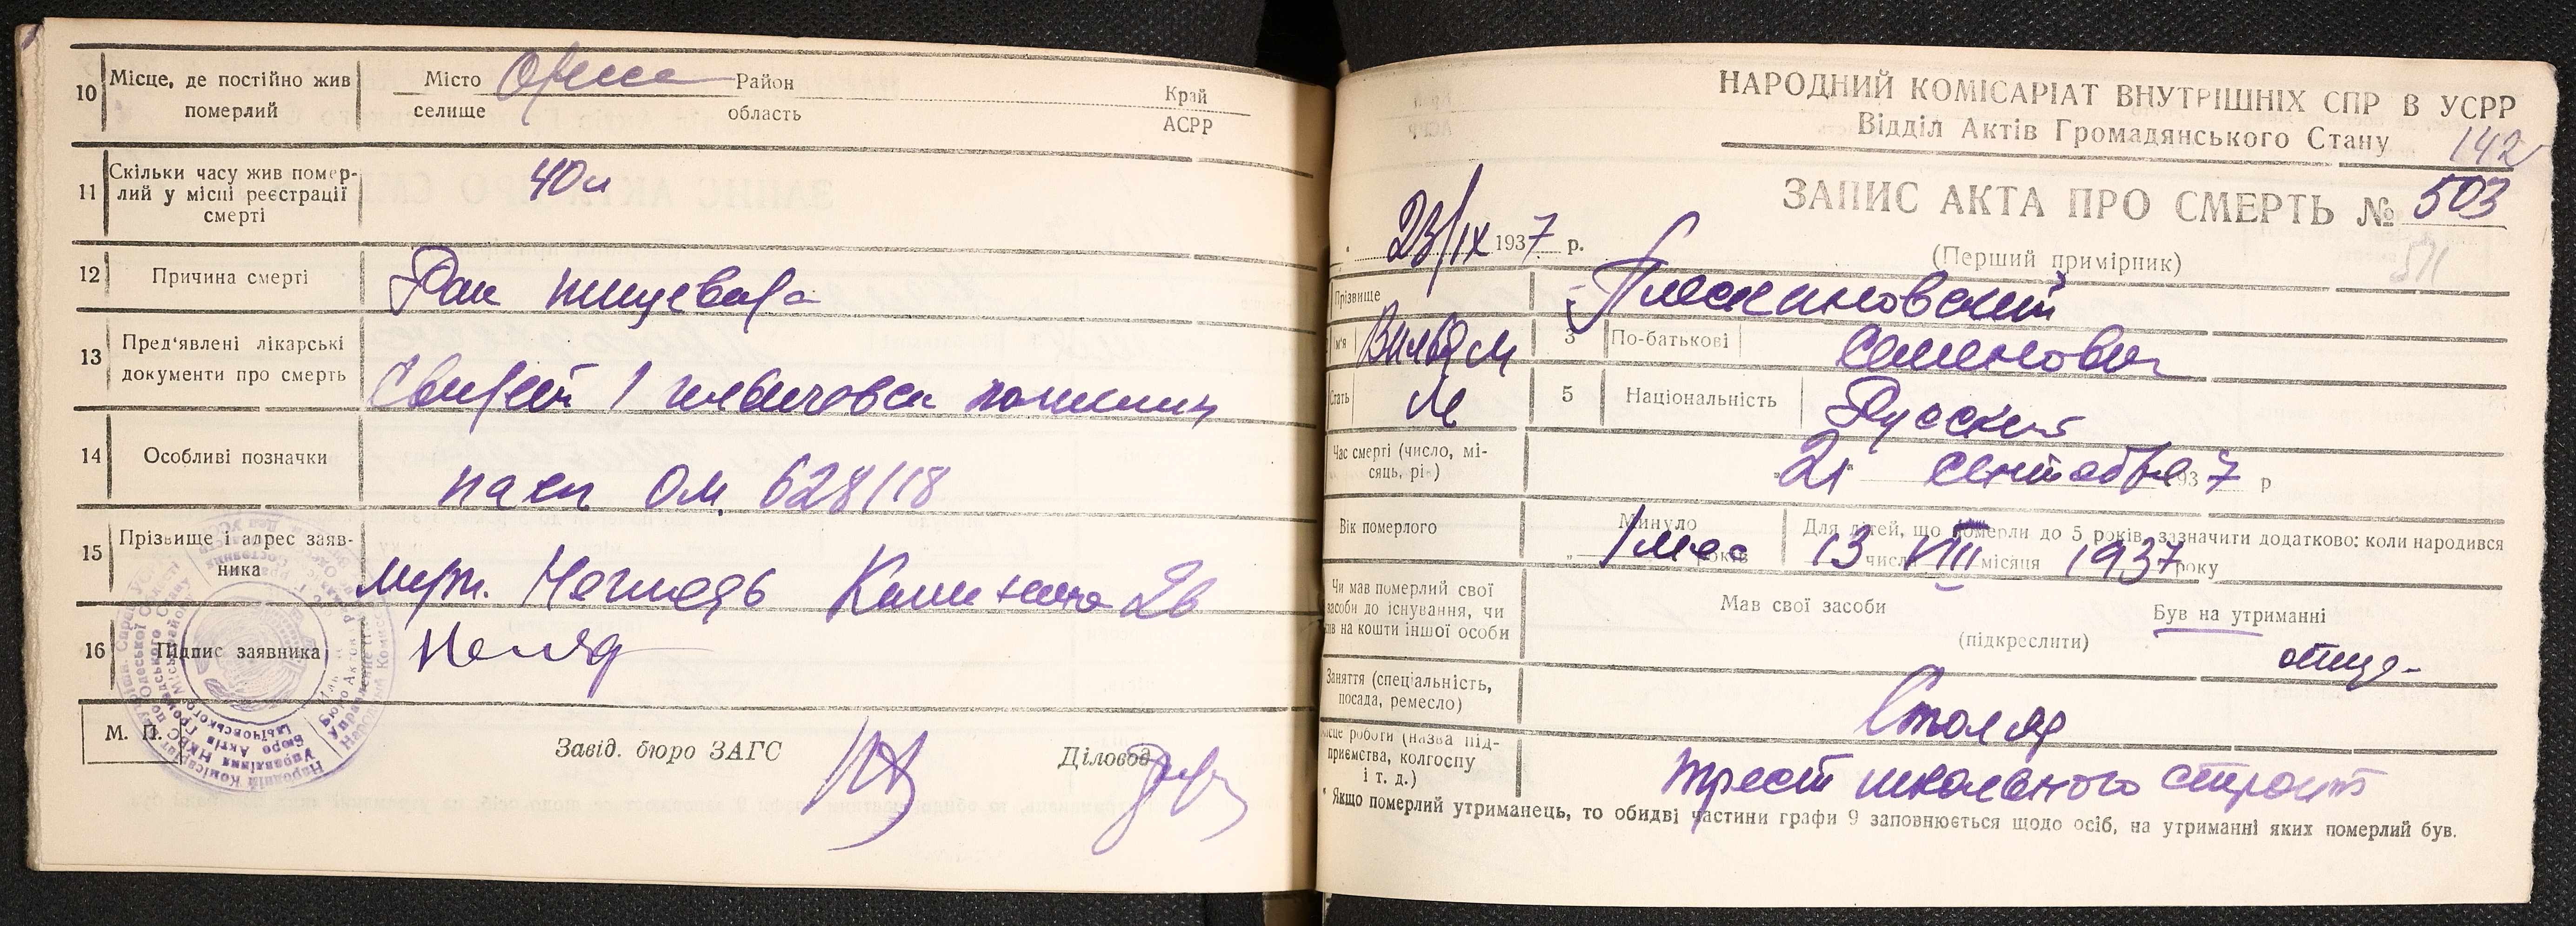 10 Місце, де постійно жив померлий
Місто Одесса Район Край
селище область АСРР
11 Скільки часу жив помер-
лий у місці реєстрації
смерті
40л
12 Причина смерті
Рак пищевода
13 Пред'явлені лікарські
документи про смерть
1
14 Особливі позначки
пасп ОМ. 628/18
15 Прізвище і адрес заяв-
ника
16 Підпис заявника
М. П.
Завід. бюро ЗАГС
Діловод
НАРОДНИЙ КОМІСАРІАТ ВНУТРІШНІХ СПР В УСРР
Відділ Актів Громадянського Стану
142
ЗАПИС АКТА ПРО СМЕРТЬ № 503
23/IX 1937 р.
(Перший примірник)
511
Прізвище
м'я Вильям 3 По-батькові Семенович
Стать М 5 Національність Русский
Час смерті (число, мі-
сяць, рі)
21 сентября 937 р
Вік померлого
Минуло
1 мес років
Для дітей, що померли до 5 років, зазначити додатково: коли народився
13 числа VIII місяця 1937 року
Чи мав померлий свої
засоби до існування, чи
на кошти іншої особи
Мав свої засоби Був на утриманні
(підкреслити)
отца
Заняття (спеціальність,
посада, ремесло)
Столяр
місце роботи (назва під-
приємства, колгоспу
і т. д.)
трест школьного строит
* Якщо померлий утриманець, то обидві частини графи 9 заповнюється щодо осіб, на утриманні яких померлий був.